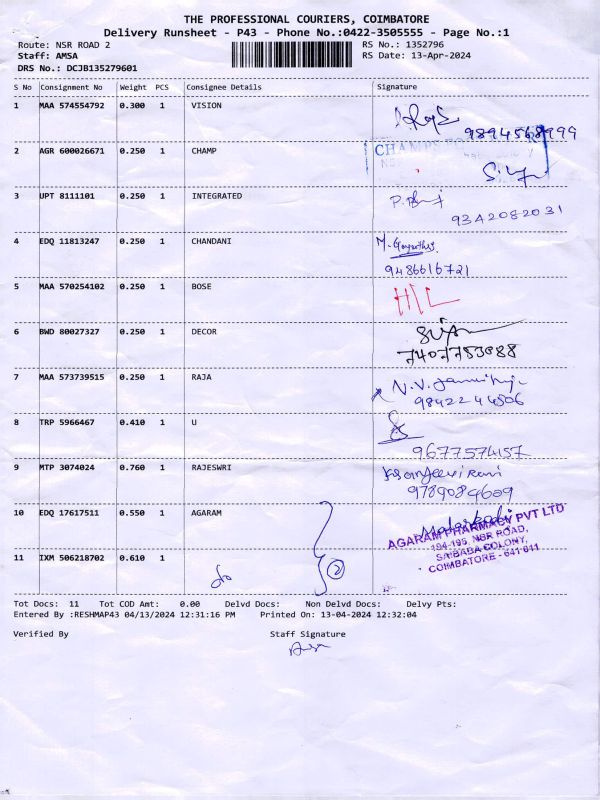 THE PROFESSIONAL COURIERS, COIMBATORE
Delivery Runsheet - P43 - Phone No.:0422-3505555 - Page No.:1
Route: NSR ROAD 2 RS No.: 1352796
Staff: AMSA RS Date: 13-Apr-2024
DRS No.: DCJB135279601
S No Consignment No Weight PCS Consignee Details Signature
1 MAA 574554792 0.300 1 VISION
9894568999
2 AGR 600026671 0.250 1 CHAMP
3 UPT 8111101 0.250 1 INTEGRATED
9342082031
4 EDQ 11813247 0.250 1 CHANDANI
9486616721
5 MAA 570254102 0.250 1 BOSE
6 BWD 80027327 0.250 1 DECOR
7407753088
7 MAA 573739515 0.250 1 RAJA
9842244506
8 TRP 5966467 0.410 1 U
9677574157
9 MTP 3074024 0.760 1 RAJESWRI
9789084609
10 EDQ 17617511 0.550 1 AGARAM
AGARAM PHARMACY PVT LTD
194-195, NSR ROAD,
SAIBABA COLONY,
COIMBATORE - 641 011
11 IXM 506218702 0.610 1
do 2
Tot Docs: 11 Tot COD Amt: 0.00 Delvd Docs: Non Delvd Docs: Delvy Pts:
Entered By :RESHMAP43 04/13/2024 12:31:16 PM Printed On: 13-04-2024 12:32:04
Verified By Staff Signature